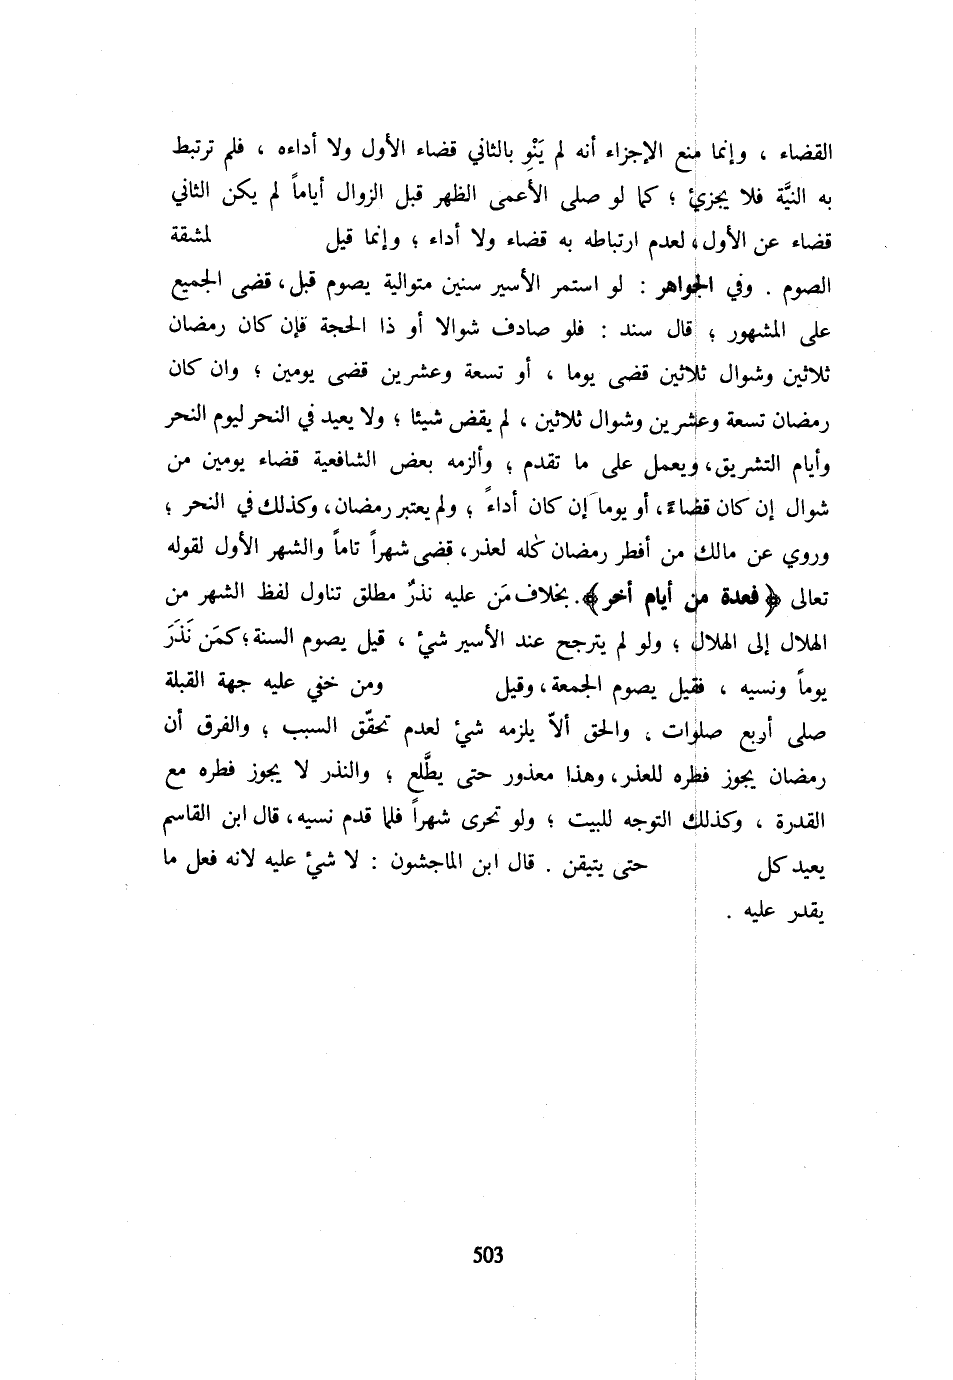 القضاء ، وإنما منع الإجزاء أنه لم يَنْوِ بالثاني قضاء الأول ولا أداءه ، فلم ترتبط
به النيَّة فلا يجزئ ؛ كما لو صلى الأعمى الظهر قبل الزوال أياماً لم يكن الثاني
قضاء عن الأول، لعدم ارتباطه به قضاء ولا أداء ؛ وإنما قيل لمشقة
الصوم . وفي الجواهر : لو استمر الأسير سنين متوالية يصوم قبل، قضى الجميع
على المشهور ؛ قال سند : فلو صادف شوالا أو ذا الحجة فإن كان رمضان
ثلاثين وشوال ثلاثين قضى يوما ، أو تسعة وعشرين قضى يومين ؛ وان كان
رمضان تسعة وعشرين وشوال ثلاثين ، لم يقض شيئا ؛ ولا يعيد في النحر ليوم النحر
وأيام التشريق، ويعمل على ما تقدم ؛ وألزمه بعض الشافعية قضاء يومين من
شوال إن كان قضاءً، أو يوما إن كان أداءً ؛ ولم يعتبر رمضان، وكذلك في النحر ؛
وروي عن مالك من أفطر رمضان كله لعذر، قضى شهراً تاماً والشهر الأول لقوله
تعالى ﴿فعدة من أيام أخر﴾. بخلاف مَن عليه نذرٌ مطلق تناول لفظ الشهر من
الهلال إلى الهلال ؛ ولو لم يترجح عند الأسير شئ ، قيل يصوم السنة؛ كمَن نَذَرَ
يوماً ونسيه ، فقيل يصوم الجمعة، وقيل ومن خفي عليه جهة القبلة
صلى أربع صلوات ، والحق ألاّ يلزمه شئ لعدم تحقّق السبب ؛ والفرق أن
رمضان يجوز فطره للعذر، وهذا معذور حتى يطَّلع ؛ والنذر لا يجوز فطره مع
القدرة ، وكذلك التوجه للبيت ؛ ولو تحرى شهراً فلما قدم نسيه، قال ابن القاسم
يعيد كل حتى يتيقن . قال ابن الماجشون : لا شئ عليه لانه فعل ما
يقدر عليه .
503